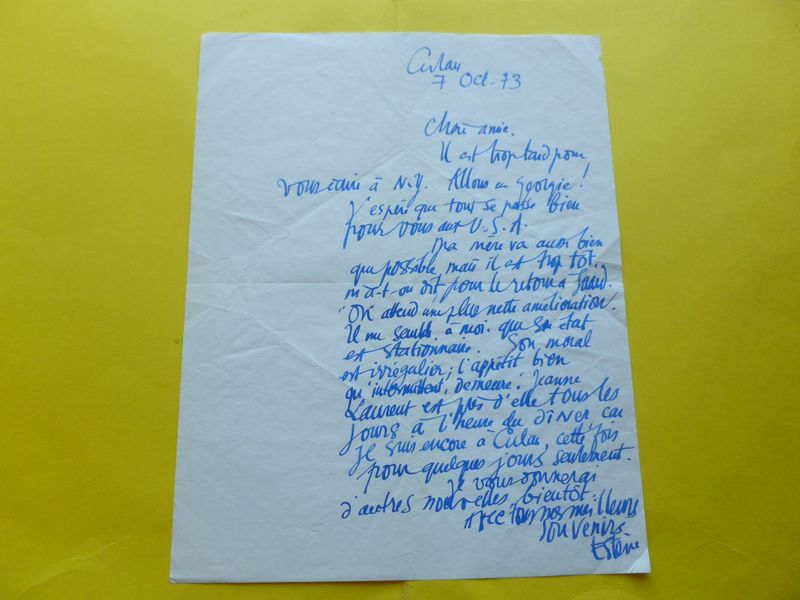 Culan
7 Oct. 73
Chère amie.
Il est trop tard pour
vous écrire à N.Y. Allons en Georgie!
J'espère que tout se passe bien
pour vous aux U.S.A.
Ma mère va aussi bien
que possible, mais il est trop tôt,
m'a-t-on dit, pour le retour à
"On" attend une plus nette amélioration.
Il me semble, à moi, que son état
est stationnaire. Son moral
est irrégulier; l'appétit bien
qu'intermittent, demeure. Jeanne
Laurent est près d'elle tous les
jours à l'heure du dîner car
je suis encore à Culan, cette fois
pour quelques jours seulement.
Je vous donnerai
d'autres nouvelles bientôt.
Avec tous nos meilleurs
souvenirs
Estève